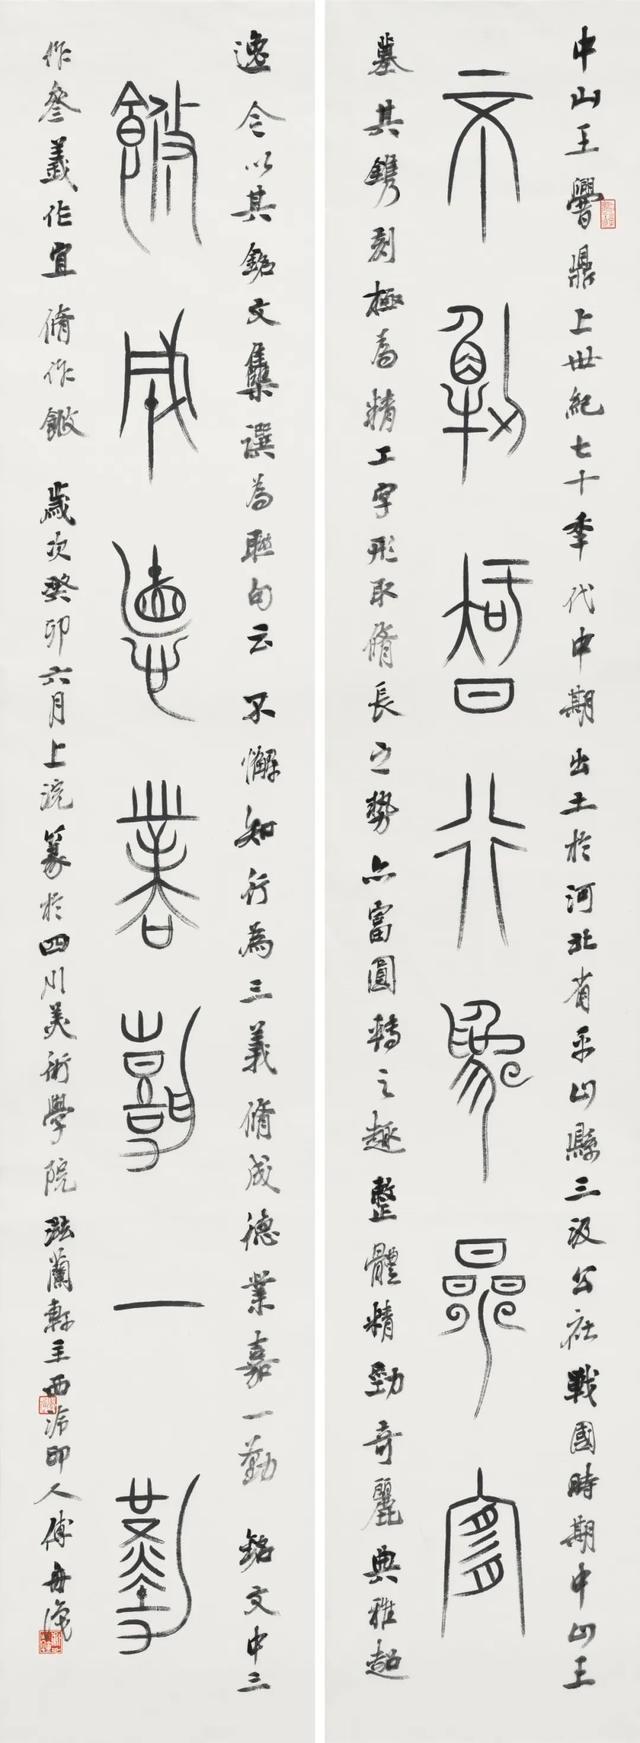 中山王鼎上世紀七十秊代中期出土於河北省平山縣三汲公社戰國時期中山王
不懈智行為參宜
墓其鐫刻極為精工字形取脩長之勢亦富圓轉之趣整體精勁奇麗典雅超
逸今以其銘文集譔為聯句云不懈知行為三義脩成德業嘉一勤 銘文中三
脩成德業嘉一勤
作參義作宜脩作 歲次癸卯六月上浣篆於四川美術學院蘭軒主西泠印人傅舟識